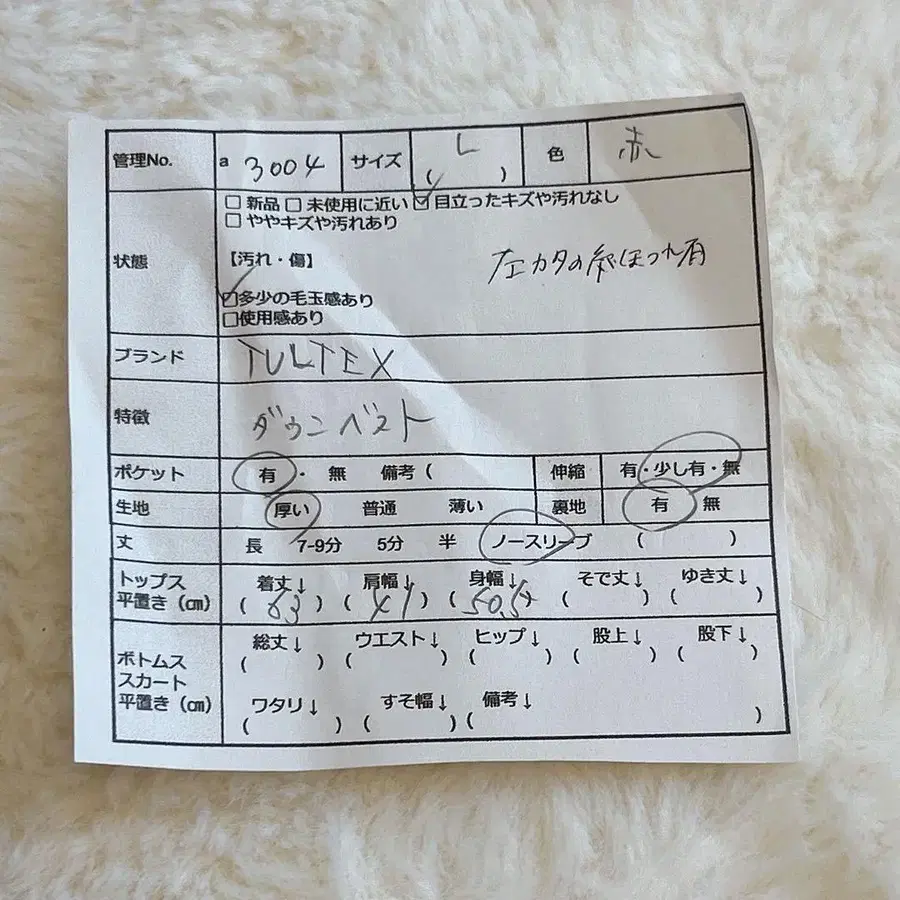 管理No. a 3004 サイズ L ( ) 色 赤
□ 新品 □ 未使用に近い ☑ 目立ったキズや汚れなし
□ ややキズや汚れあり
状態 【汚れ・傷】 左カタの糸ほつれ有
☑多少の毛玉感あり
□使用感あり
ブランド TULTEX
特徴 ダウンベスト
ポケット 有 ・ 無 備考 ( 伸縮 有・少し有・無
生地 厚い 普通 薄い 裏地 有 無
丈 長 7-9分 5分 半 ノースリーブ ( )
トップス 着丈↓ 肩幅↓ 身幅↓ そで丈↓ ゆき丈↓
平置き (㎝) ( 63 ) ( 41 ) ( 50.5 ) ( ) ( )
総丈↓ ウエスト↓ ヒップ↓ 股上↓ 股下↓
ボトムス ( ) ( ) ( ) ( ) ( )
スカート
平置き (㎝) ワタリ↓ すそ幅↓ 備考↓
( ) ( ) ( )